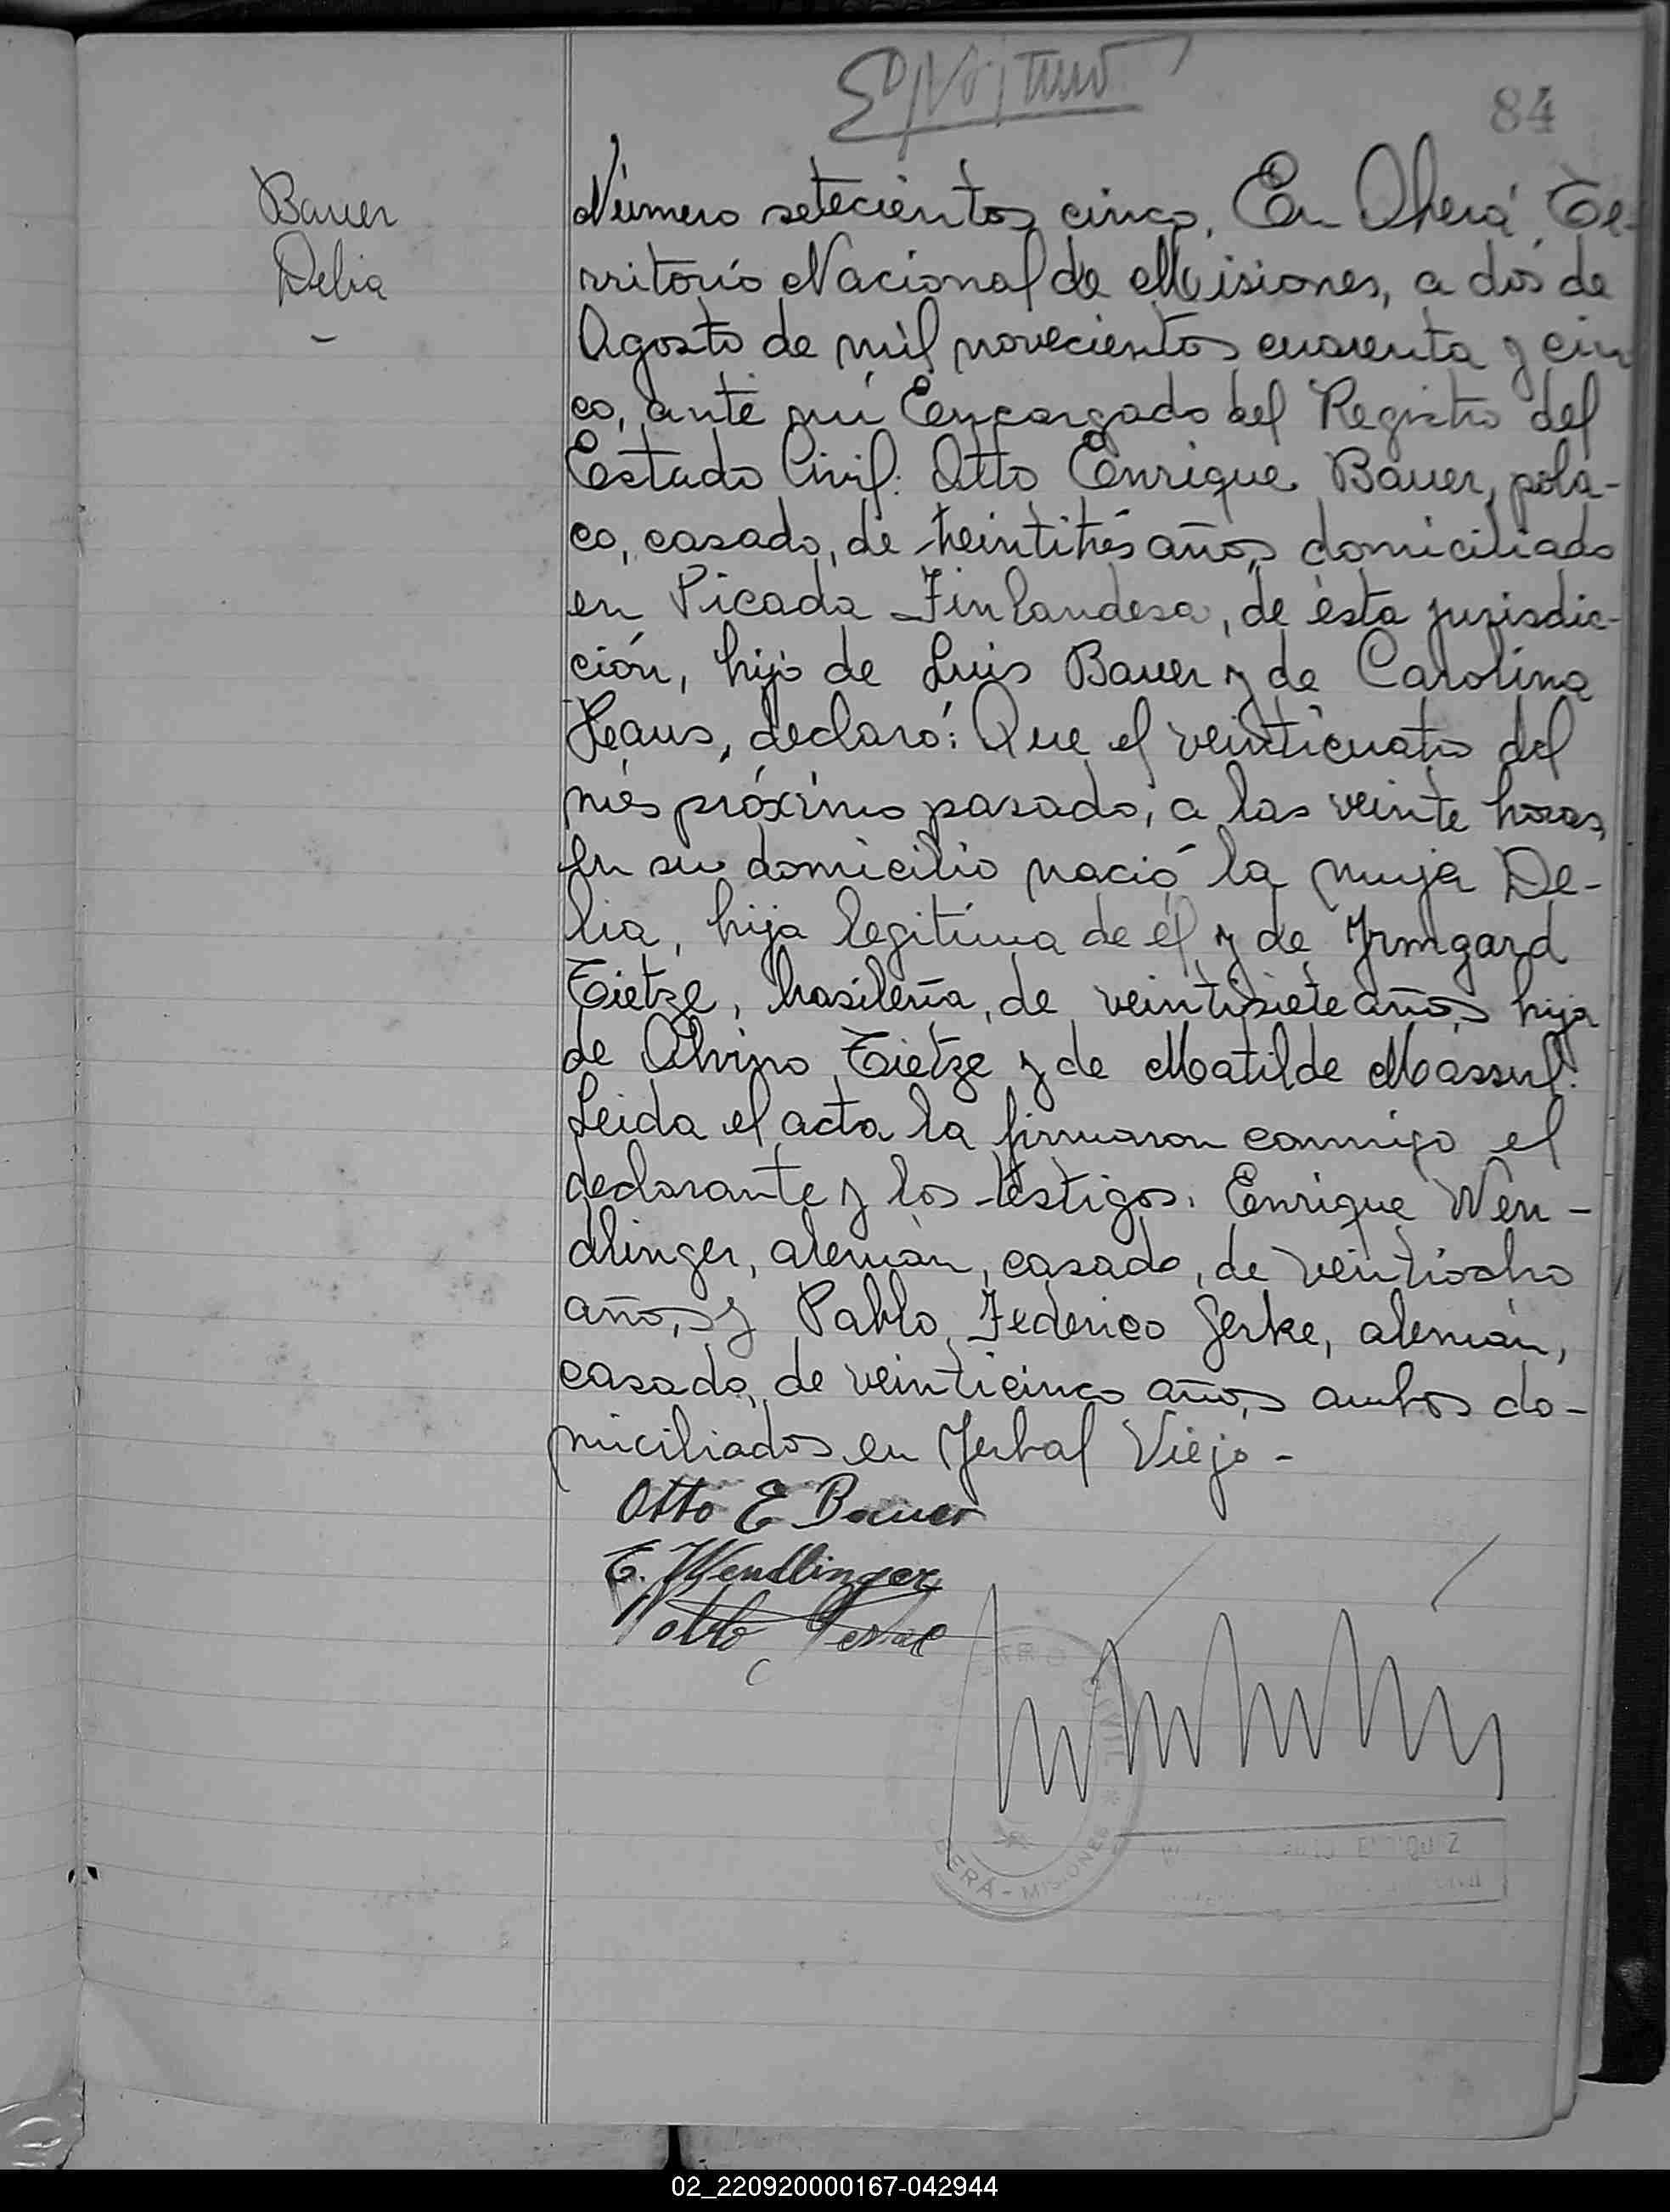 84
Bauer
Delia
Número setecientos cinco. En Oberá, Te-
rritorio Nacional de Misiones, a dos de
Agosto de mil novecientos cuarenta y cin
co, ante mí Encargado del Registro del
Estado Civil: Otto Enrique Bauer, pola-
co, casado, de treintitrés años, domiciliado
en Picada Finlandesa, de ésta jurisdic-
ción, hijo de Luis Bauer y de Carolina
Haus, declaró: Que el veinticuatro del
mes próximo pasado, a las veinte horas,
en su domicilio nació la mujer De-
lia, hija legítima de él y de Irmgard
Tietze, brasileña, de veintisiete años, hija
de Alvino Tietze y de Matilde
Leida el acta la firmaron conmigo el
declarante y los testigos: Enrique Wen-
dlinger, alemán, casado, de veintiocho
años, y Pablo Federico Gerke, alemán,
casado, de veinticinco años, ambos do-
miciliados en Yerbal Viejo -
Otto E Bauer
E. Wendlinger
Pablo Gerke
CIVIL
OBERÁ - MISIONES
02_220920000167-042944